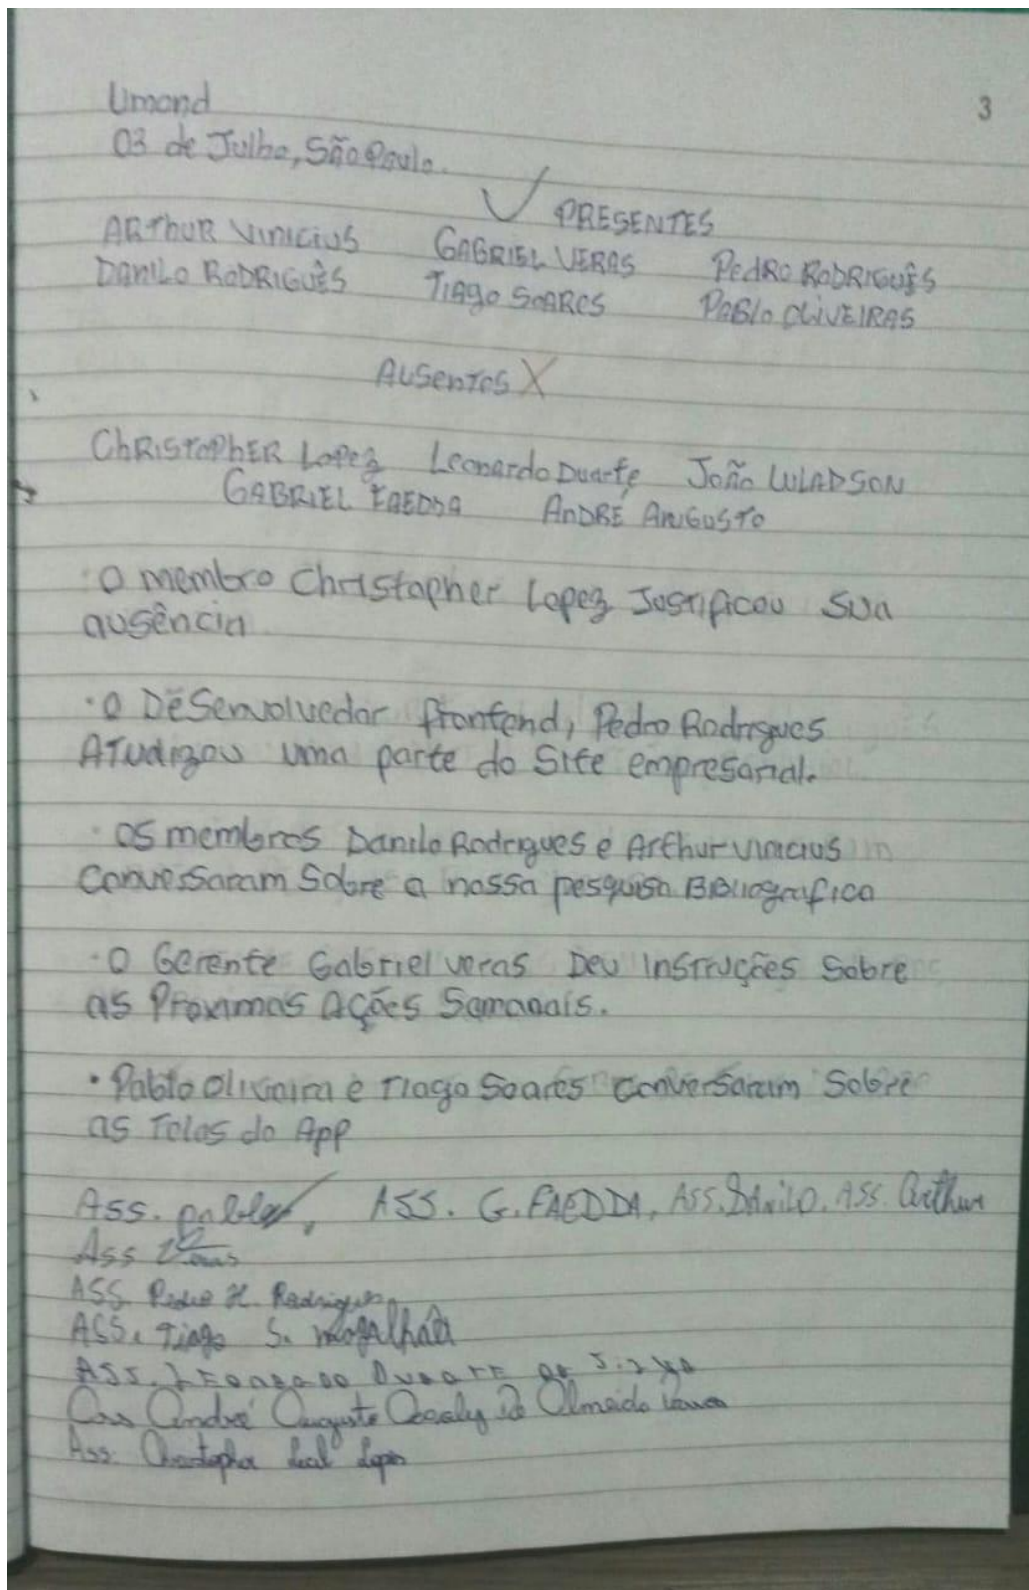 Umond
3
03 de Julho, São Paulo.
✓ PRESENTES
ARThUR VINICIUS GABRIEL VERAS PEDRO RODRIGUÊS
DANILO RODRIGUÊS TIAGO SOARES PABLO OLIVEIRAS
AUSENTES X
ChRISTOPhER LOPEZ Leonardo Duarte João WLADSON
GABRIEL FAEDDA ANDRÉ AUGUSTO
· O membro Christopher Lopez Justificou sua
ausência
· O Desenvolvedor frontend, Pedro Rodrigues
ATualizou uma parte do Site empresarial.
· Os membros Danilo Rodrigues e Arthur vinicius
Conversaram Sobre a nossa pesquisa Bibliografica
· O Gerente Gabriel veras Deu Instruções Sobre
as Próximas Ações Semanais.
· Pablo Oliveira e Tiago Soares Conversaram Sobre
as Telas do App
Ass. pablo, ASS. G. FAEDDA, ASS. DANILO. ASS. Arthur
Ass Veras
ASS. Pedro H. Rodrigues
ASS. Tiago S. Magalhães
ASS. LEONARDO DUARTE
André Augusto de Almeida
Ass. Christopher Leal Lopes